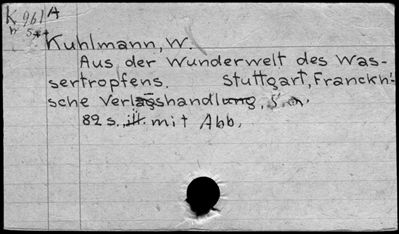 K 961 A
Kuhlmann, W.
Aus der Wunderwelt des Was-
sertropfens. Stuttgart, Franckh'
sche Verlagshandlung, s.a.
82 s. ill. mit Abb.